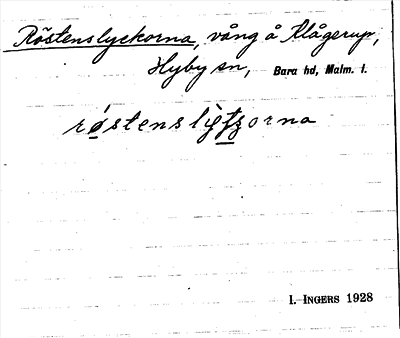 Röstenslyckorna, vång å Klågerup,
Hyby sn, Bara hd, Malm. l.
røstenslytʃorna
I. INGERS 1928